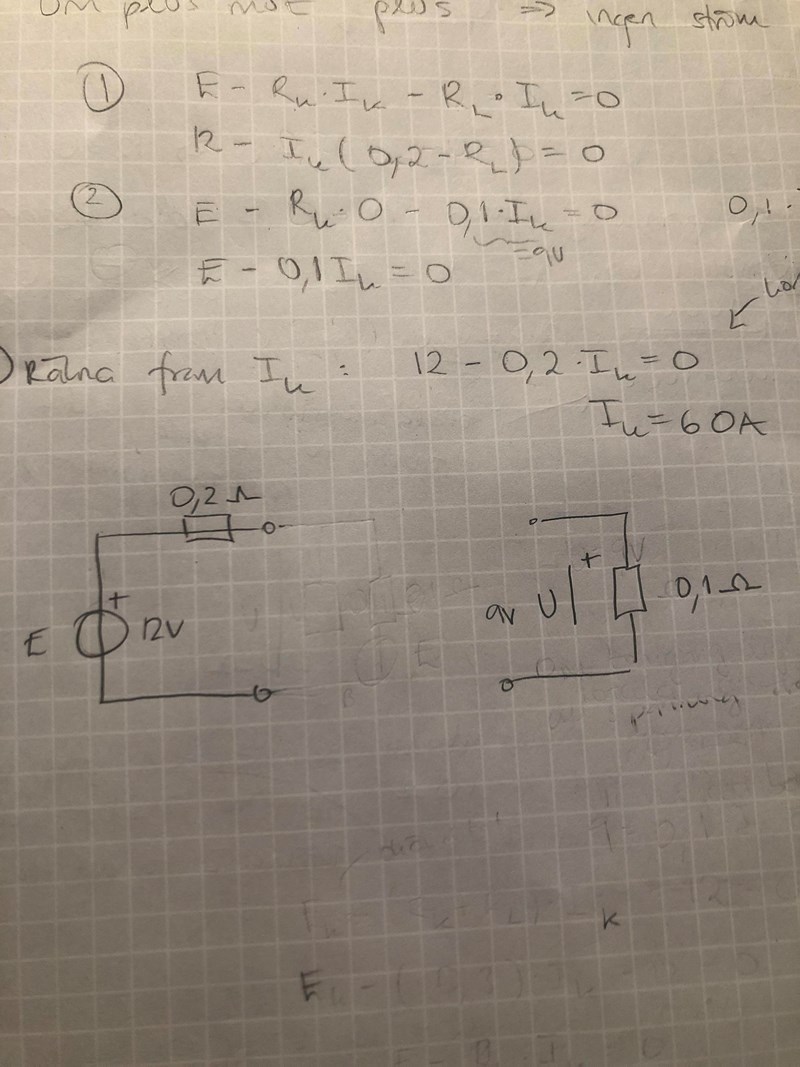 Om plus mot plus => ingen ström
① E - Rₖ · Iₖ - R_L · Iₖ = 0
12 - Iₖ (0,2 - R_L) = 0
② E - Rₖ · 0 - 0,1 · Iₖ = 0 0,1 ·
= 9V
E - 0,1 Iₖ = 0
) Räkna fram Iₖ : 12 - 0,2 · Iₖ = 0
Iₖ = 60A
0,2 Ω
+
E 12V
+
9V U 0,1 Ω
K
E